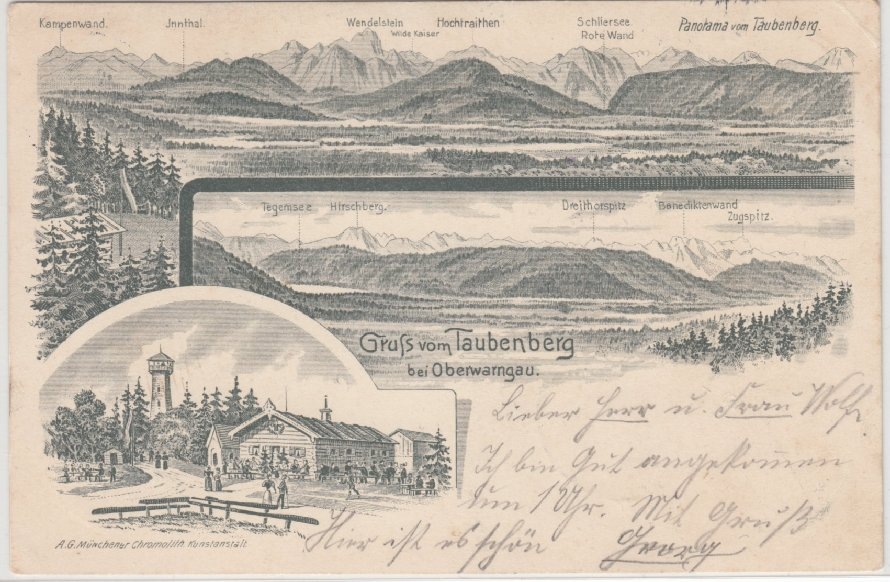 Kampenwand. Jnnthal. Wendelstein Hochtraithen Schliersee. Panorama vom Taubenberg.
Wilde Kaiser Rote Wand
Tegernsee Hirschberg. Dreithorspitz Benediktenwand
Zugspitz.
Gruss vom Taubenberg
bei Oberwarngau.
Lieber Herr u. Frau Wolf
Ich bin Gut angekommen
um 1 Uhr. Mit Gruß
Hier ist es schön Georg
A.G. Münchener Chromolith. Kunstanstalt